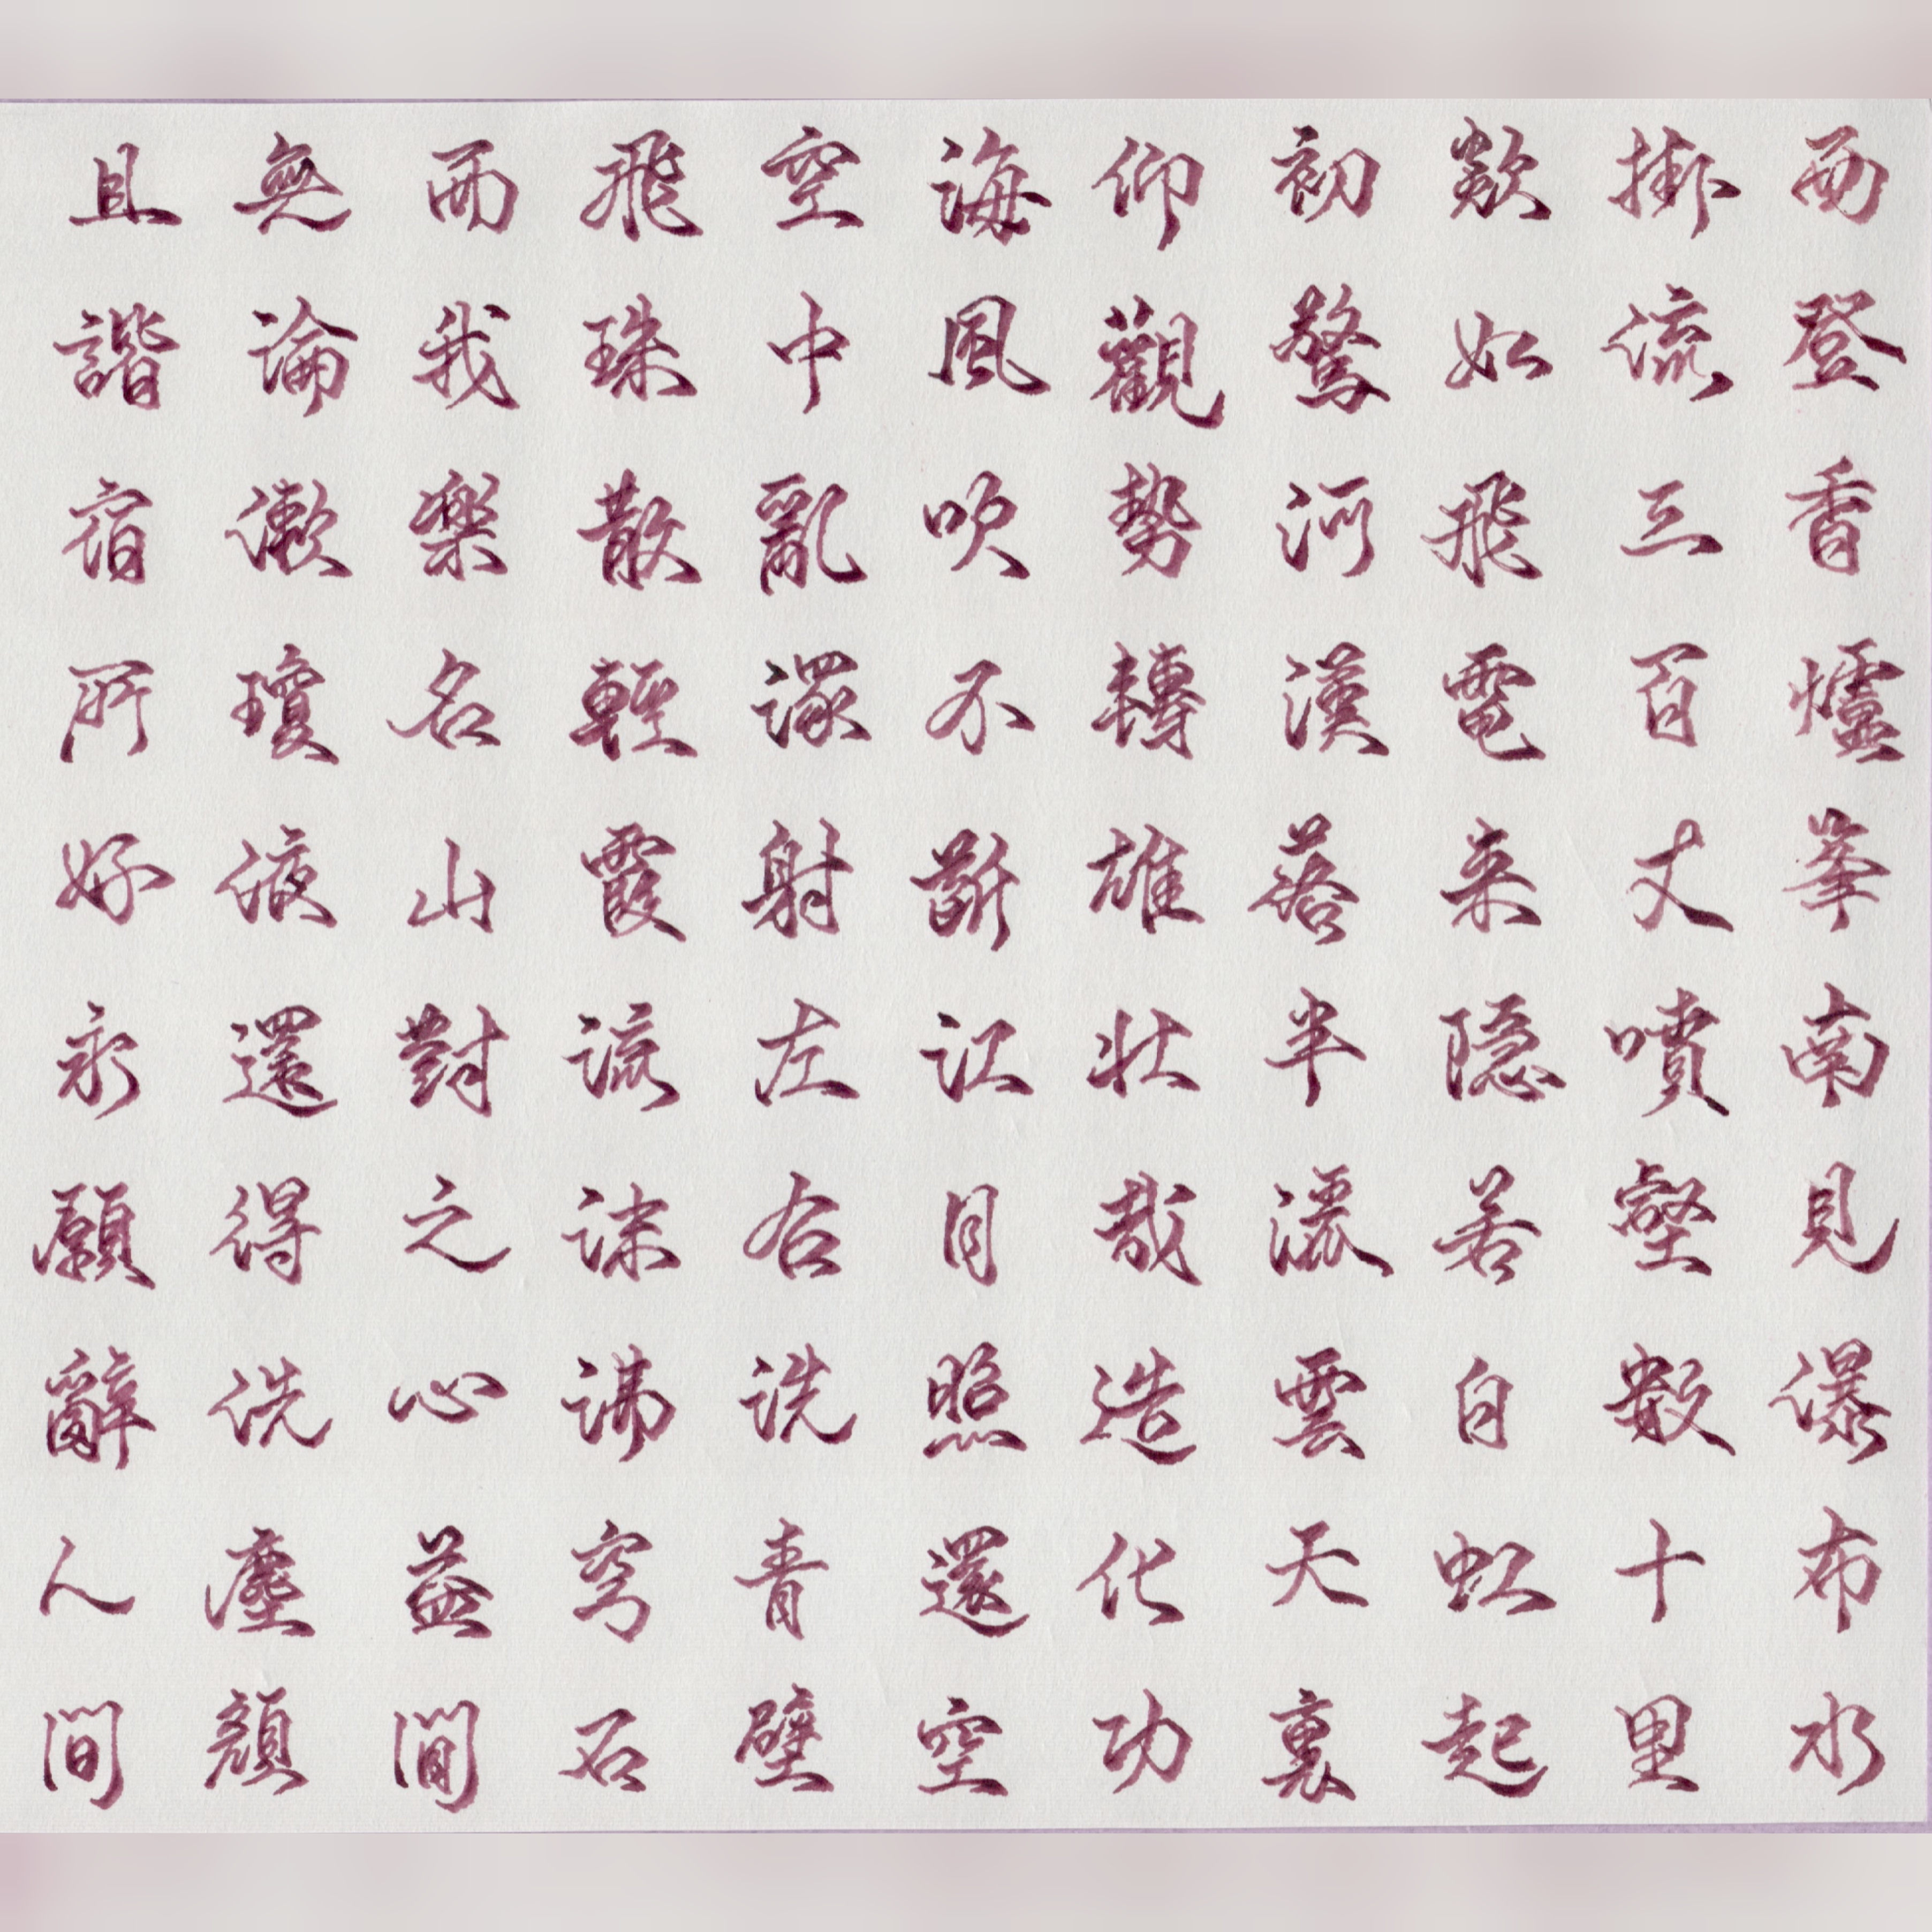 西登香爐峯南見瀑布水
掛流三百丈噴壑數十里
欻如飛電来隱若白虹起
初驚河漢落半灑雲天裏
仰觀勢轉雄壯哉造化功
海風吹不斷江月照還空
空中亂潈射左右洗青壁
飛珠散輕霞流沫沸穹石
而我樂名山對之心益閒
無論漱瓊液還得洗塵顏
且諧宿所好永願辭人間